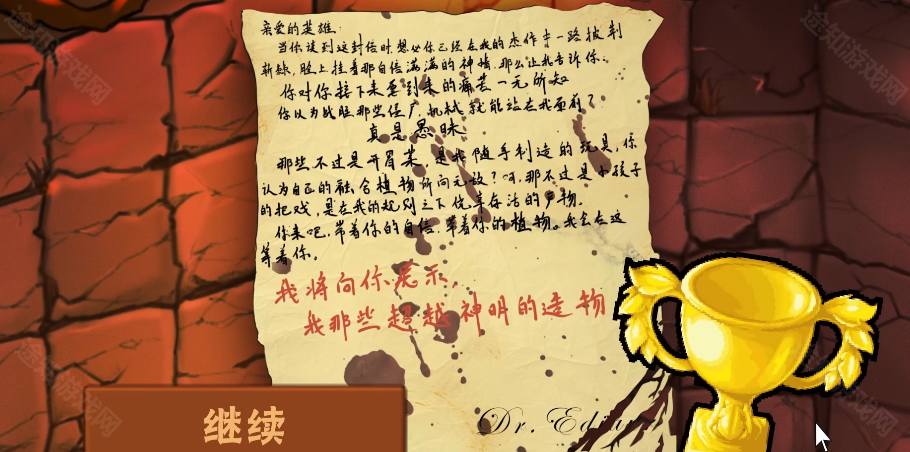 亲爱的英雄:
当你读到这封信时想必你已经在我的杰作中一路披荆
斩棘,脸上挂着那自信满满的神情,那么让我告诉你:
你对你接下来要到来的痛苦一无所知
你以为战胜那些僵尸机械就能站在我面前?
真是愚昧
那些不过是开胃菜,是我随手制造的玩具,你
认为自己的融合植物所向无敌?呵,那不过是小孩子
的把戏,是在我的规则之下优幸存活的产物.
你来吧,带着你的自信,带着你的植物。我会在这
等着你。
我将向你展示,
我那些超越神明的造物
Dr.
继续
途知游戏网